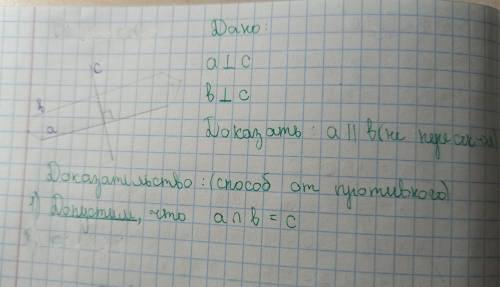 Дано:
a ⊥ c
в ⊥ c
Доказать: a || в (не пересек-ся)
c
в
a
Доказательство: (способ от противного)
1) Допустим, что a ∩ в = c